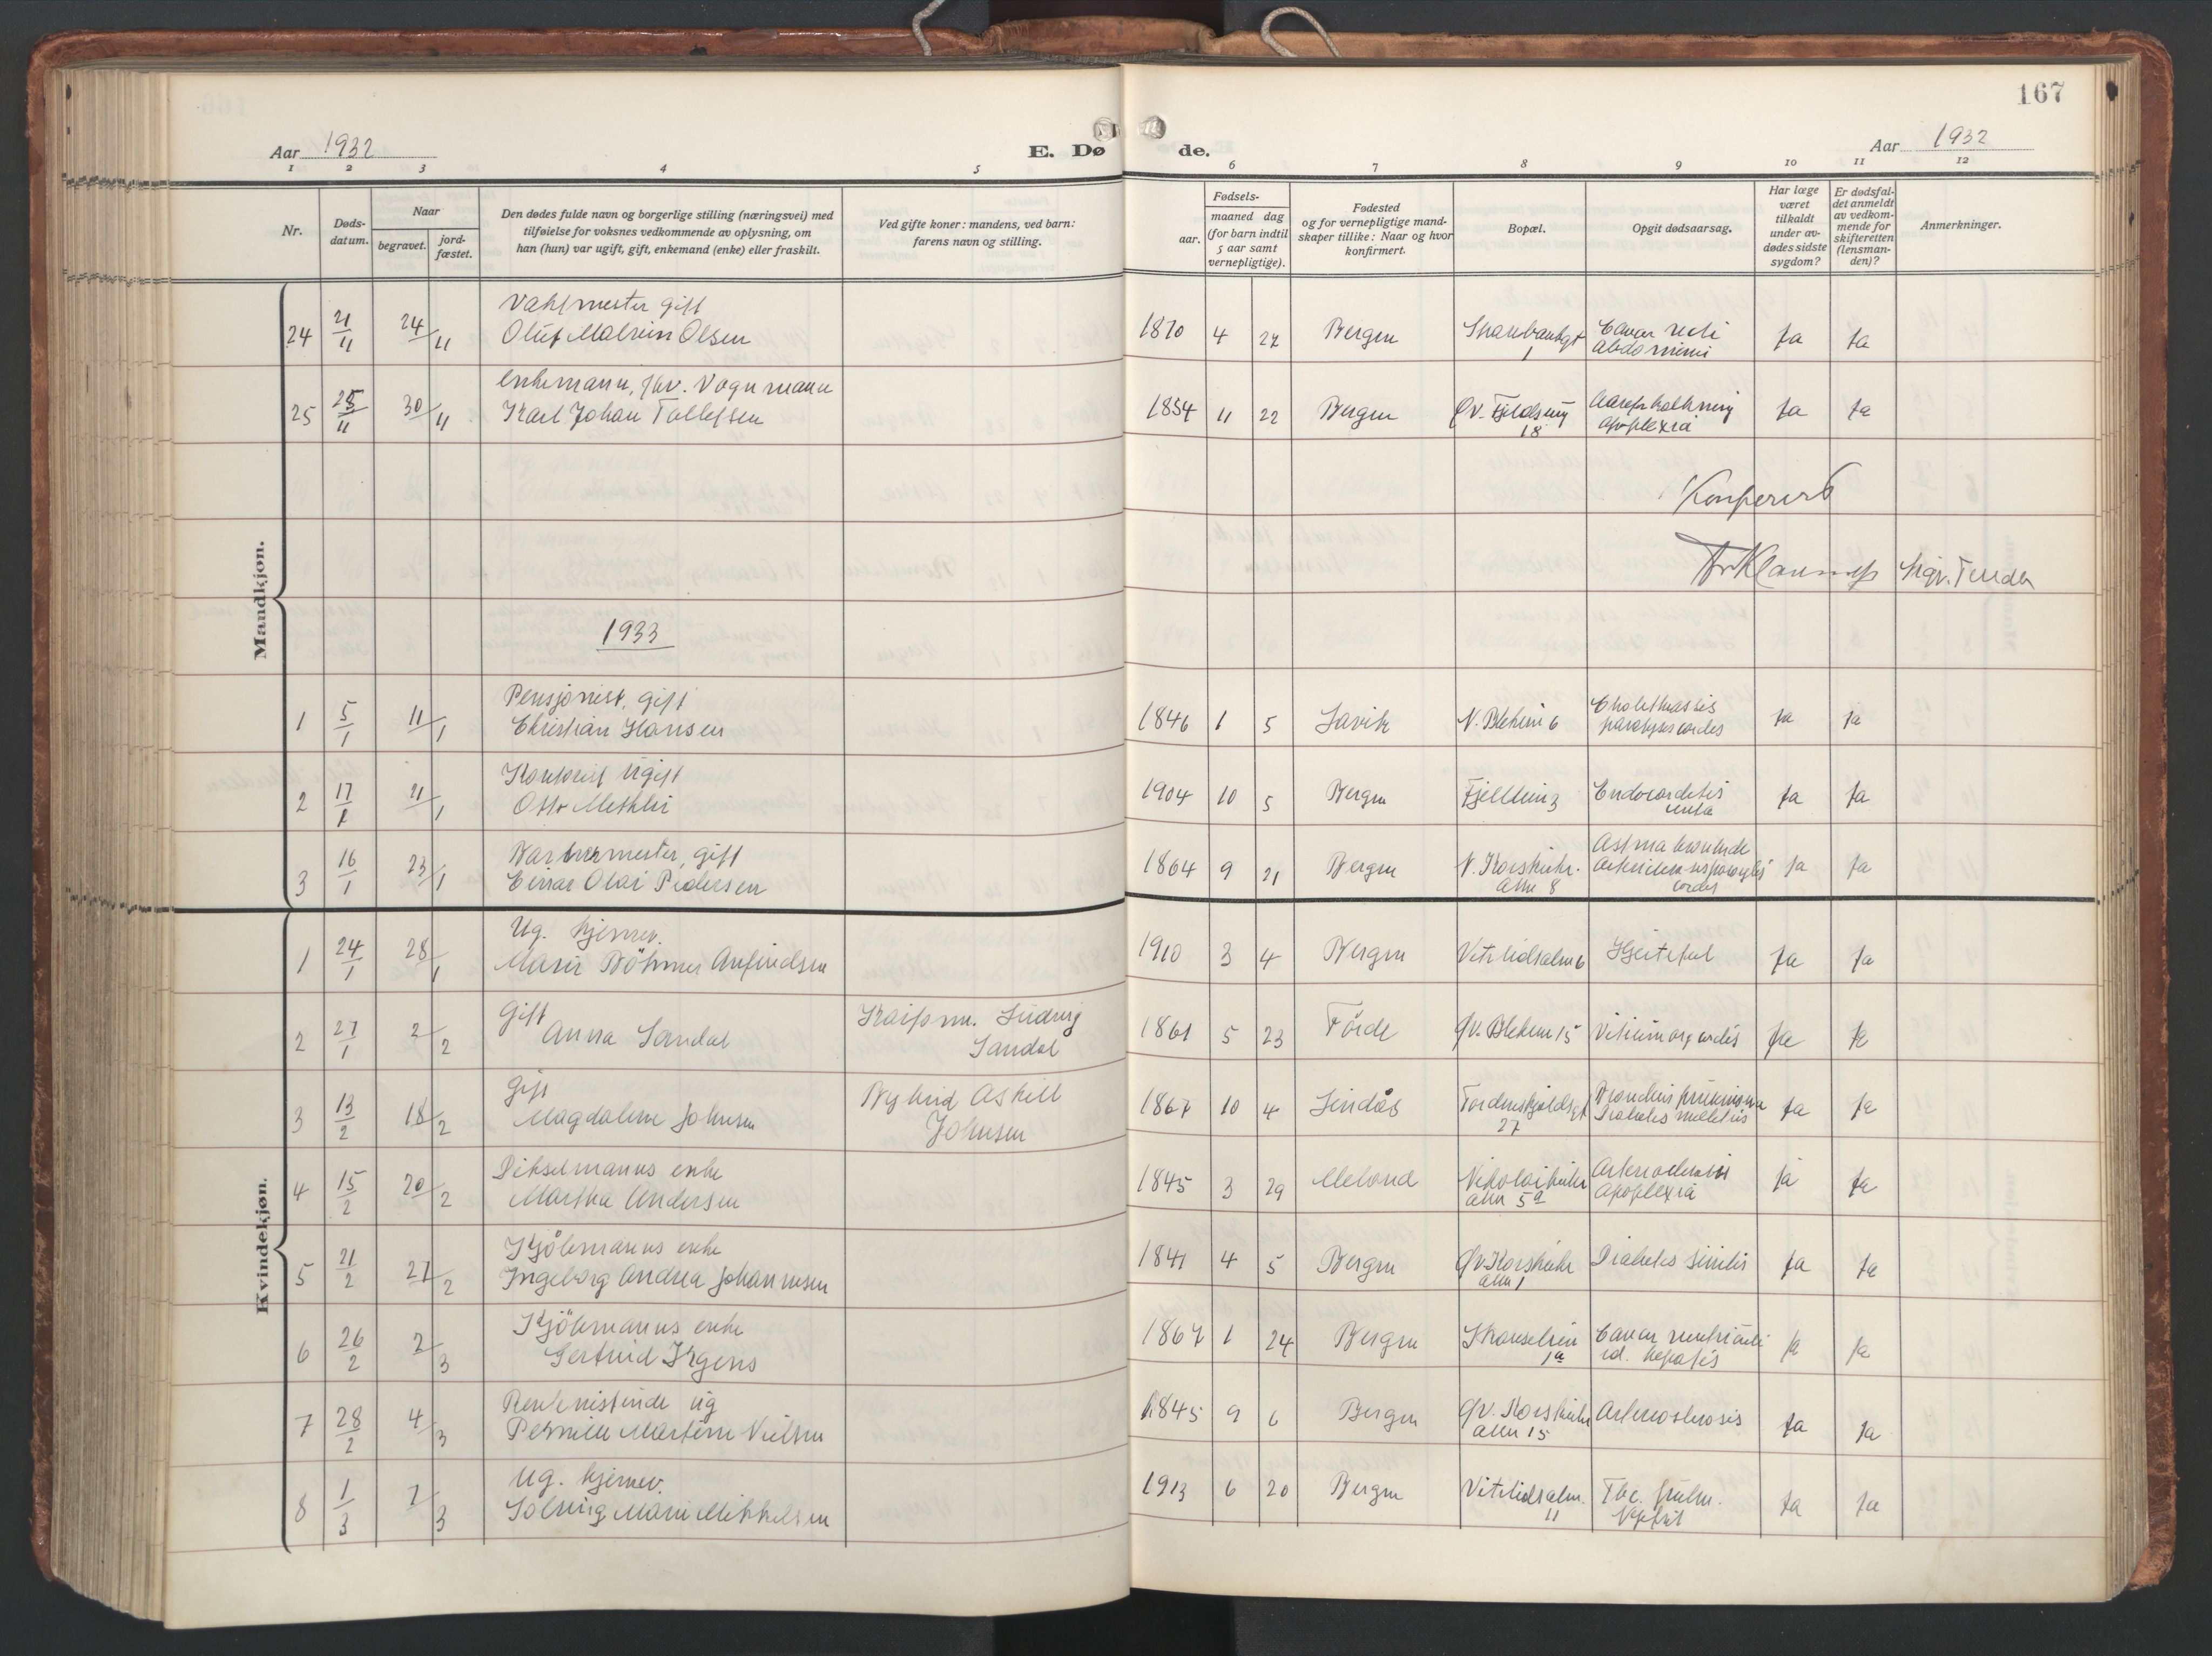 167
Aar 1932
E. Dø de.
Aar 1932
1 2 3 4 5 6 7 8 9 10 11 12
Nr.
Døds-
datum.
Naar
begravet.
jord-
fæstet.
Den dødes fulde navn og borgerlige stilling (næringsvei) med
tilføielse for voksnes vedkommende av oplysning, om
han (hun) var ugift, gift, enkemand (enke) eller fraskilt.
Ved gifte koner: mandens, ved barn:
farens navn og stilling.
Fødsels-
aar.
maaned dag
(for barn indtil
5 aar samt
vernepligtige).
Fødested
og for vernepligtige mand-
skaper tillike: Naar og hvor
konfirmert.
Bopæl.
Opgit dødsaarsag.
Har læge
været
tilkaldt
under av-
dødes sidste
sygdom?
Er dødsfal-
det anmeldt
av vedkom-
mende for
skifteretten
(lensman-
den)?
Anmerkninger.
Mandkjøn.
24 21/11 24/11 gift
Oluf Olsen
1870 4 27 Bergen 1 abdomini ja ja
25 25/11 30/11 Enkemann, Vognmann
Karl Johan Tollefsen
1854 11 22 Bergen Øv. 18 Aareforkalkning
apoplexia ja ja
Konferert
1933
1 5/1 11/1 Pensjonist, gift
Christian Hansen
1846 1 5 Lavik N. Blekev 6 ja ja
2 17/1 21/1 Kontorist ugift
Otto
1904 10 5 Bergen 3 Endocarditis
lenta ja ja
3 16/1 23/1 gift
Einar Olai Pedersen
1864 9 21 Bergen N. Korskirke-
alm 8 Astma
cordis ja ja
Kvindekjøn.
1 24/1 28/1 Ug. hjemmev.
Marie Böhmer Arfindsen
1910 3 4 Bergen Vitelidsalm 6 Hjertefeil ja ja
2 27/1 2/2 Gift
Anna Sandal
Ludvig
Sandal
1861 5 23 Förde Øv. Blekev 15 Vitium org cordis ja ja
3 13/2 18/2 Gift
Magdalene Johnsen
Askill
Johnsen
1867 10 4 Lindås Tordenskjoldsgt
27
Diabetes mellitus ja ja
4 15/2 20/2 enke
Martha Andersen
1845 3 29 Meland Nikolaikirke
alm 5a
Apoplexia ja ja
5 21/2 27/2 Kjöbmanns enke
Ingeborg Andrea Johannesen
1841 4 5 Bergen Øv. Korskirke
alm 1 Diabetes senilis ja ja
6 26/2 2/3 Kjöbmanns enke
Gertrud Irgens
1867 1 24 Bergen 1a Cancer ventriculi
ed. hepatis ja ja
7 28/2 4/3 Rentenistinde ug
Pernille Martine Nielsen
1845 9 6 Bergen Øv. Korskirke
alm 15 Arteriosklerosis ja ja
8 1/3 7/3 Ug. hjemmev.
Solveig Marie Mikkelsen
1913 6 20 Bergen Vitelidsalm.
11 Tbc. pulm.
Nefrit ja ja